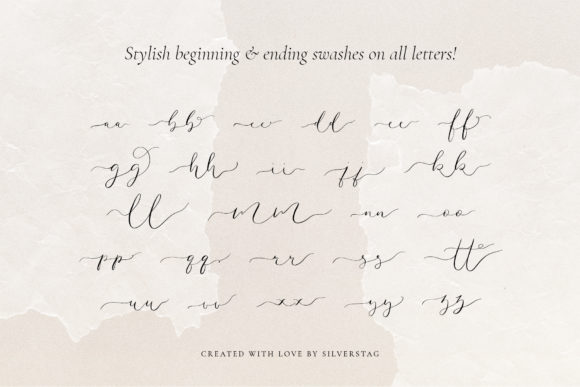 Stylish beginning & ending swashes on all letters!
aa bb cc dd ee ff
gg hh ii jj kk
ll mm nn oo
pp qq rr ss tt
uu vv xx yy zz
CREATED WITH LOVE BY SILVERSTAG